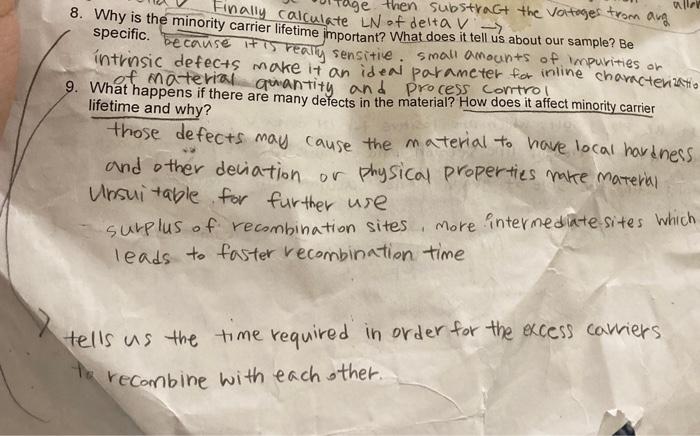 Finally calculate LN of delta V → tage then substract the Voltages from avg
8. Why is the minority carrier lifetime important? What does it tell us about our sample? Be
specific. because it is really sensitive. small amounts of impurities or
intrinsic defects make it an ideal parameter for inline characterizatio
of material quantity and process control
9. What happens if there are many defects in the material? How does it affect minority carrier
lifetime and why?
those defects may cause the material to have local hardness
and other deviation or physical properties make material
Unsuitable for further use
- surplus of recombination sites, more intermediate sites which
leads to faster recombination time
tells us the time required in order for the excess carriers
to recombine with each other.